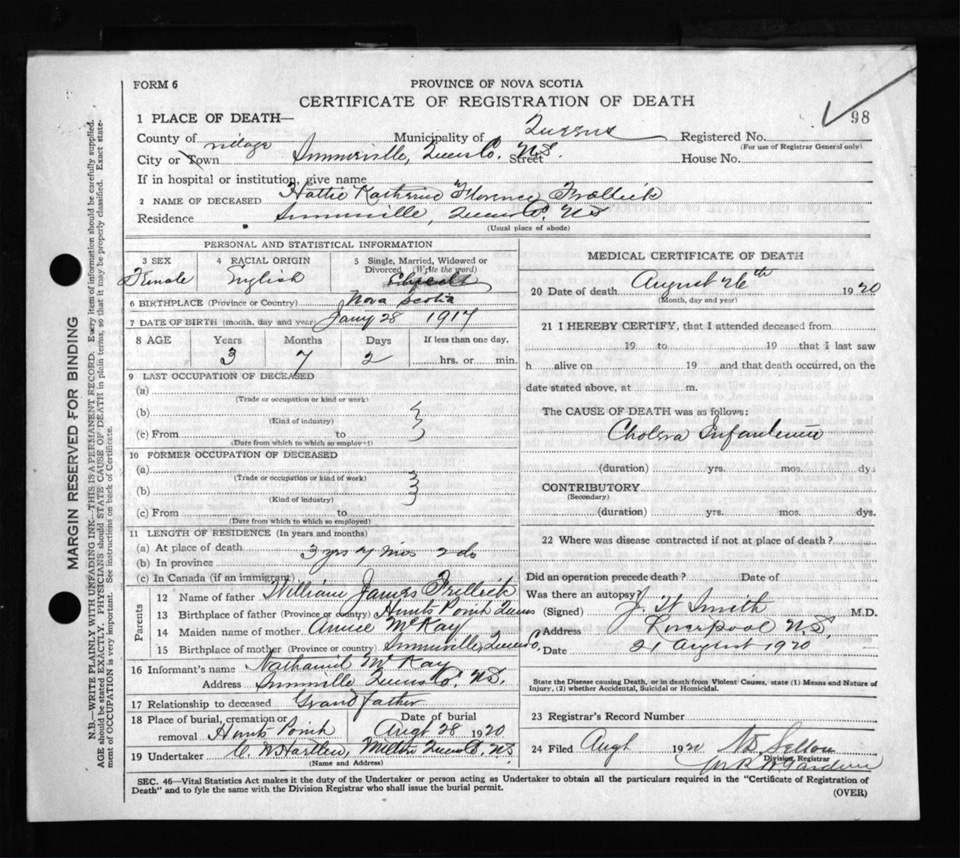 FORM 6
PROVINCE OF NOVA SCOTIA
CERTIFICATE OF REGISTRATION OF DEATH
98
1 PLACE OF DEATH—
County of Municipality of Queens Registered No.
(For use of Registrar General only)
village
City or Town Summerville, Queens Co. N.S. Street House No.
If in hospital or institution, give name
2 NAME OF DECEASED Hattie Katherine Florence
Residence Summerville, Queens Co. N.S
(Usual place of abode)
PERSONAL AND STATISTICAL INFORMATION
3 SEX 4 RACIAL ORIGIN 5 Single, Married, Widowed or Divorced (Write the word)
Female English
6 BIRTHPLACE (Province or Country) Nova Scotia
7 DATE OF BIRTH (month, day and year) Jany 28 1917
8 AGE Years Months Days If less than one day,
3 7 2 hrs. or min.
9 LAST OCCUPATION OF DECEASED
(a)
(Trade or occupation or kind of work)
(b)
(Kind of industry)
(c) From to
(Date from which to which so employed)
10 FORMER OCCUPATION OF DECEASED
(a)
(Trade or occupation or kind of work)
(b)
(Kind of industry)
(c) From to
(Date from which to which so employed)
11 LENGTH OF RESIDENCE (In years and months)
(a) At place of death 3 yrs 7 mos 2 do
(b) In province
(c) In Canada (if an immigrant)
Parents
12 Name of father William James
13 Birthplace of father (Province or country) Hunts Point Queens
14 Maiden name of mother Annie McKay
15 Birthplace of mother (Province or country) Summerville, Queens Co.
16 Informant's name Nathaniel McKay
Address Summerville Queens Co. N.S.
17 Relationship to deceased Grandfather
18 Place of burial, cremation or removal Hunts Point Date of burial Augt 28 1920
19 Undertaker Milton Queens Co. N.S.
(Name and Address)
MEDICAL CERTIFICATE OF DEATH
20 Date of death August 26th 1920
(Month, day and year)
21 I HEREBY CERTIFY, that I attended deceased from
19 to 19 that I last saw
h alive on 19 and that death occurred, on the
date stated above, at m.
The CAUSE OF DEATH was as follows:
Cholera Infantum
(duration) yrs. mos. dys
CONTRIBUTORY
(Secondary)
(duration) yrs. mos. dys.
22 Where was disease contracted if not at place of death?
Did an operation precede death? Date of
Was there an autopsy?
(Signed) J. W Smith M.D.
Address Liverpool N.S.
Date 21 August 1920
State the Disease causing Death, or in death from Violent Causes, state (1) Means and Nature of Injury, (2) whether Accidental, Suicidal or Homicidal.
23 Registrar's Record Number
24 Filed Augt 1920
Division Registrar
SEC. 46—Vital Statistics Act makes it the duty of the Undertaker or person acting as Undertaker to obtain all the particulars required in the "Certificate of Registration of
Death" and to fyle the same with the Division Registrar who shall issue the burial permit.
(OVER)
MARGIN RESERVED FOR BINDING
N.B.—WRITE PLAINLY WITH UNFADING INK—THIS IS A PERMANENT RECORD. Every item of information should be carefully supplied.
AGE should be stated EXACTLY. PHYSICIANS should STATE CAUSE OF DEATH in plain terms, so that it may be properly classified. Exact statement of OCCUPATION is very important. See instructions on back of Certificate.